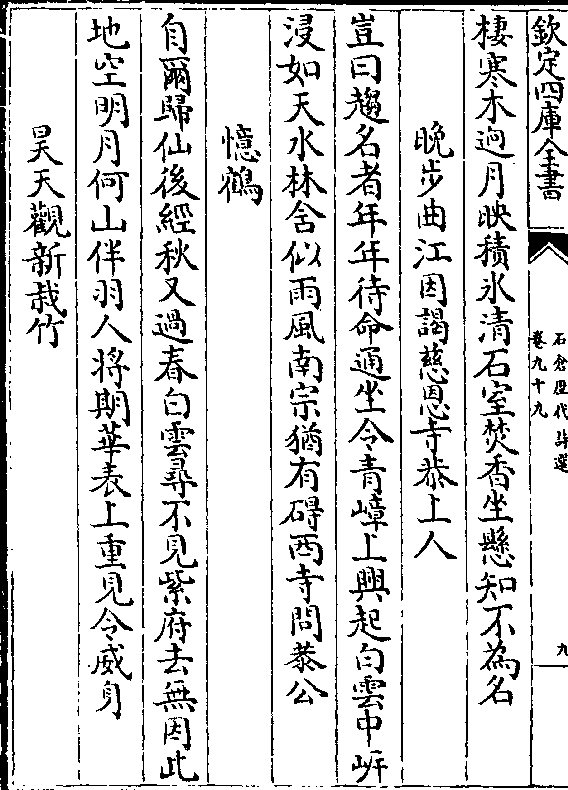 欽定四庫全書
石倉歴代詩選
卷九十九
九
棲寒木迥月映積氷清石室焚香坐懸知不為名
晚步曲江因謁慈恩寺恭上人
豈曰趨名者年年待命通坐令青嶂上興起白雲中岸
浸如天水林含似雨風南宗猶有碍西寺問恭公
憶鶴
自爾歸仙後經秋又過春白雲尋不見紫府去無因此
地空明月何山伴羽人將期華表上重見令威身
昊天觀新栽竹